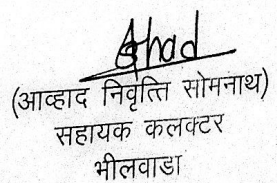 Ahad
(आव्हाद निवृत्ति सोमनाथ)
सहायक कलक्टर
भीलवाडा